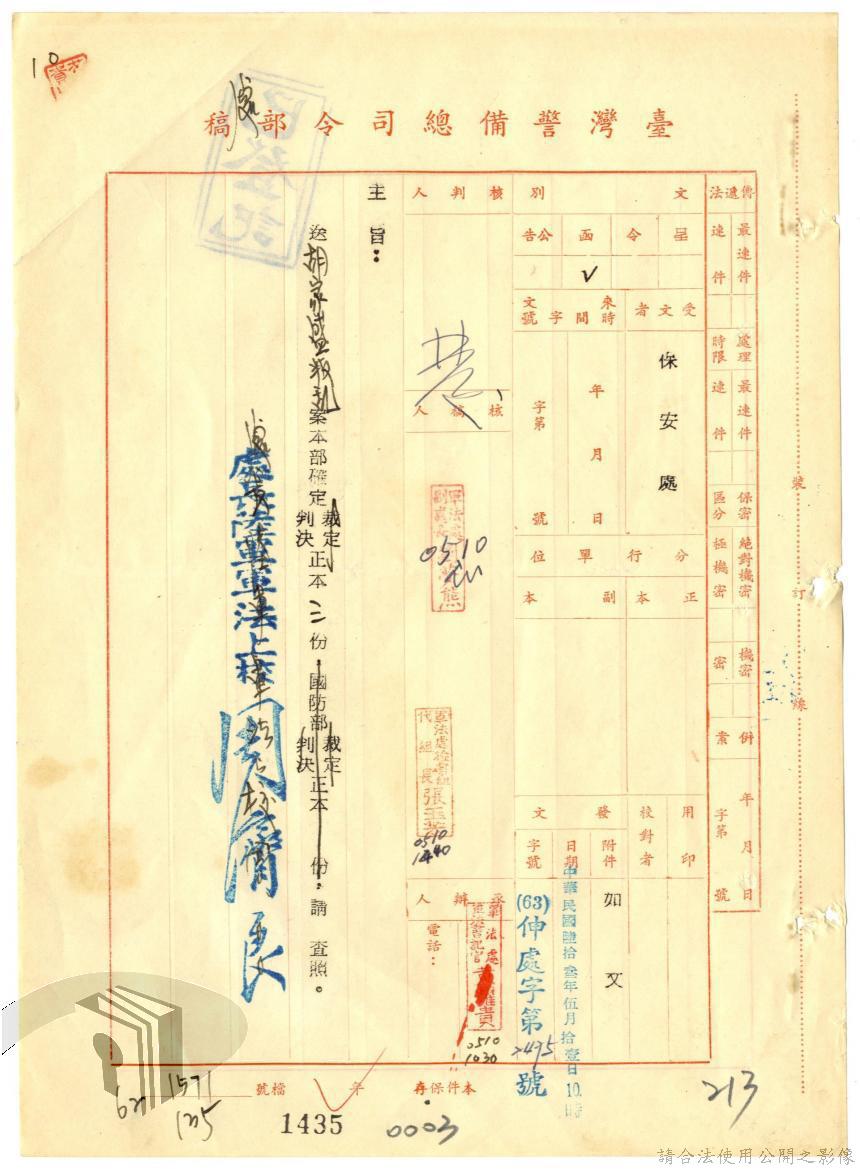 臺灣警備總司令部稿
已登記
傳遞法
最速件
速件
處理時限
最速件
速件
保密區分
絕對機密
極機密
機密
密
併案
年月日
字第號
文別
呈
令
函
公告
✓
受文者
保安處
來文
時間
字號
年月日
字第號
分行單位
正本
副本
用印
校對者
發文
附件
如文
日期
中華民國陸拾叁年伍月拾壹日10時
字號
(63)伸處字第2495號
核判人
核稿人
0510
代組長張玉芳
0510
1440
承辦人
軍法處
電話：
0510
1030
主旨：
送胡家盛叛亂案本部確定裁定判決正本三份，國防部裁定判決正本份，請查照。
處長陸軍軍法上校周濟良
本件保存年
檔號
62
1571
125
1435
0003
213
10
裝訂線
請合法使用公開之影像